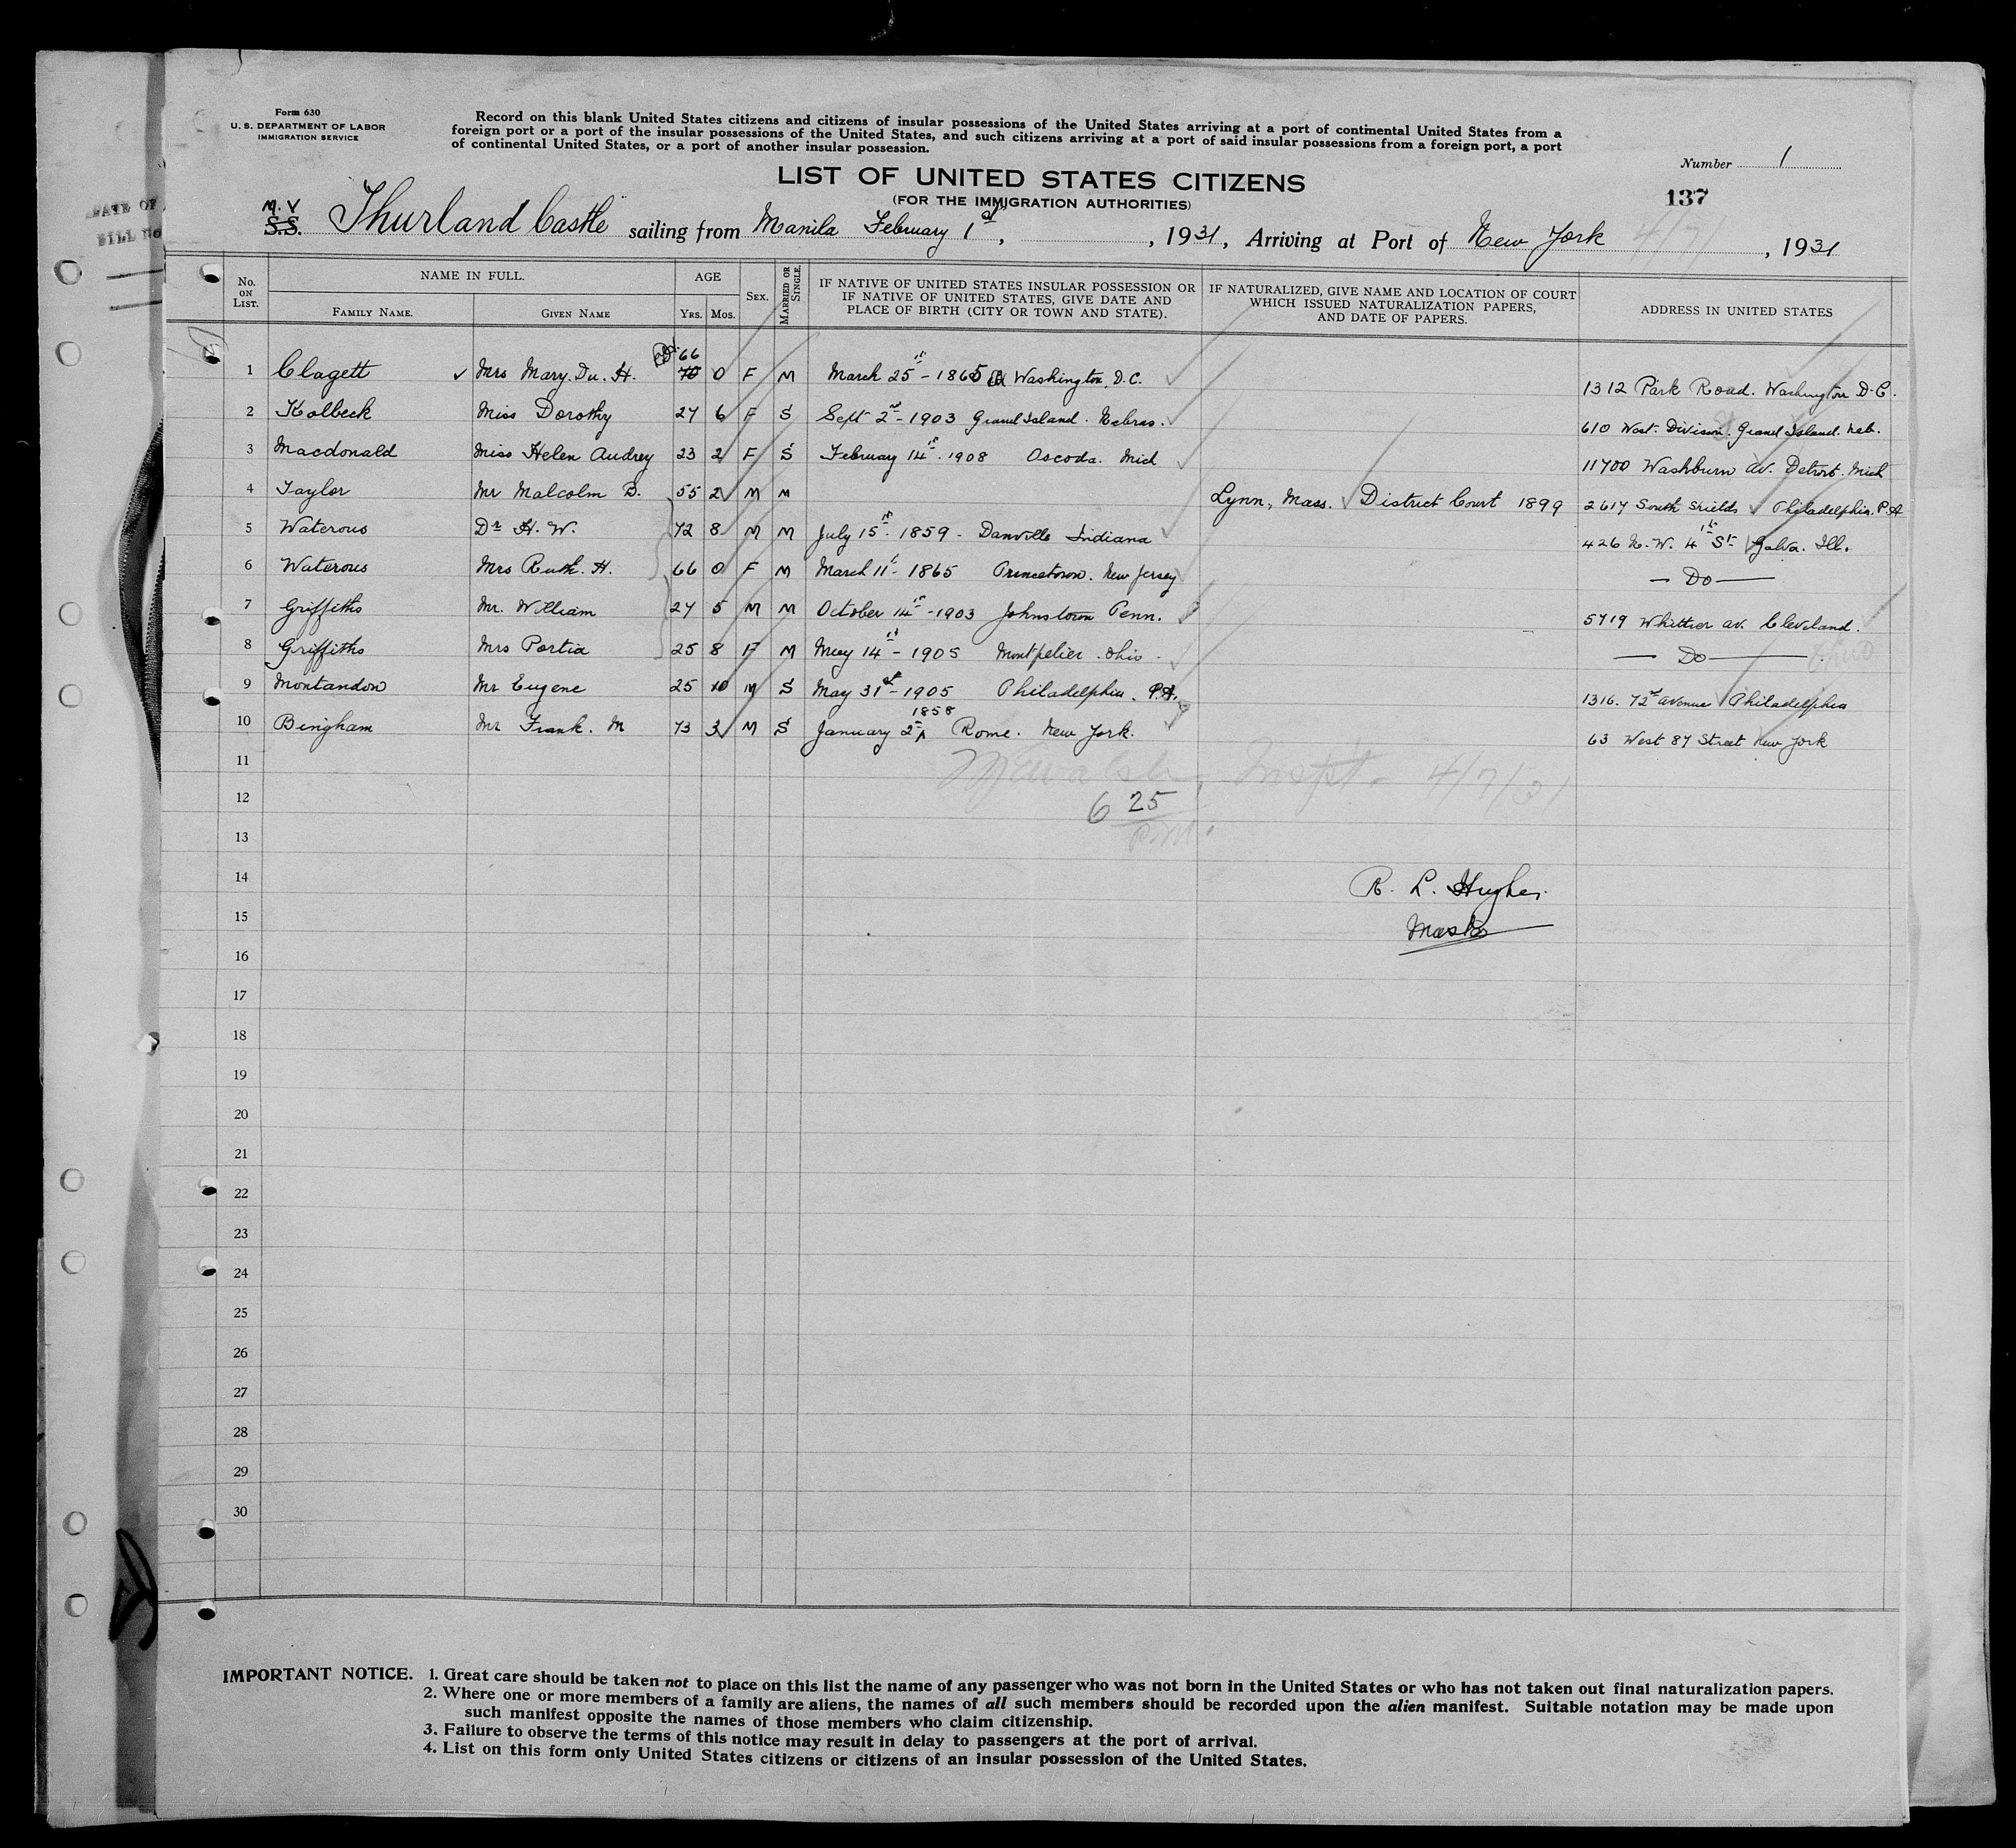 DATE OF
BILL No
Form 630
U. S. DEPARTMENT OF LABOR
IMMIGRATION SERVICE
Record on this blank United States citizens and citizens of insular possessions of the United States arriving at a port of continental United States from a
foreign port or a port of the insular possessions of the United States, and such citizens arriving at a port of said insular possessions from a foreign port, a port
of continental United States, or a port of another insular possession.
Number 1
LIST OF UNITED STATES CITIZENS
(FOR THE IMMIGRATION AUTHORITIES)
137
M.V S.S. Thurland Castle sailing from Manila February 1st, , 1931, Arriving at Port of New York 4/7/ , 1931
No. ON LIST. NAME IN FULL. AGE SEX. MARRIED OR SINGLE. IF NATIVE OF UNITED STATES INSULAR POSSESSION OR IF NATIVE OF UNITED STATES, GIVE DATE AND PLACE OF BIRTH (CITY OR TOWN AND STATE). IF NATURALIZED, GIVE NAME AND LOCATION OF COURT WHICH ISSUED NATURALIZATION PAPERS, AND DATE OF PAPERS. ADDRESS IN UNITED STATES
FAMILY NAME. GIVEN NAME YRS. MOS.
1 Clagett Mrs Mary. Du. H. 70 66 0 F M March 25th - 1865 Washington, D.C. 1312 Park Road. Washington D.C.
2 Kolbeck Miss Dorothy 27 6 F S Sept 2nd - 1903 Grand Island. Nebras. 610 West. Division. St Grand Island. Neb.
3 Macdonald Miss Helen Audrey 23 2 F S February 14th. 1908 Oscoda. Mich 11700 Washburn av. Detroit. Mich
4 Taylor Mr Malcolm B. 55 2 M M Lynn, Mass. District Court 1899 2617 South Shields Philadelphia. P.A
5 Waterous Dr H. W. 72 8 M M July 15th. 1859 - Danville Indiana 426 N. W. 4th St Galva. Ill.
6 Waterous Mrs Ruth. H. 66 0 F M March 11th - 1865 Princetown. New Jersey — Do —
7 Griffiths Mr. William 27 5 M M October 14th - 1903 Johnstown Penn. 5719 Whittier av. Cleveland.
8 Griffiths Mrs Portia 25 8 F M May 14th - 1905 Montpelier. Ohio. — Do — Ohio
9 Montandon Mr Eugene 25 10 M S May 31st - 1905 Philadelphia. P.A. 1316. 72nd avenue Philadelphia
10 Bingham Mr Frank. M 73 3 M S January 2nd 1858 Rome. New York. 63 West 87 Street New York
11
Inspt. 4/7/31
12
6 25
P.M.
13
14
R. L. Hughes.
15
Master
16
17
18
19
20
21
22
23
24
25
26
27
28
29
30
IMPORTANT NOTICE. 1. Great care should be taken not to place on this list the name of any passenger who was not born in the United States or who has not taken out final naturalization papers.
2. Where one or more members of a family are aliens, the names of all such members should be recorded upon the alien manifest. Suitable notation may be made upon
such manifest opposite the names of those members who claim citizenship.
3. Failure to observe the terms of this notice may result in delay to passengers at the port of arrival.
4. List on this form only United States citizens or citizens of an insular possession of the United States.